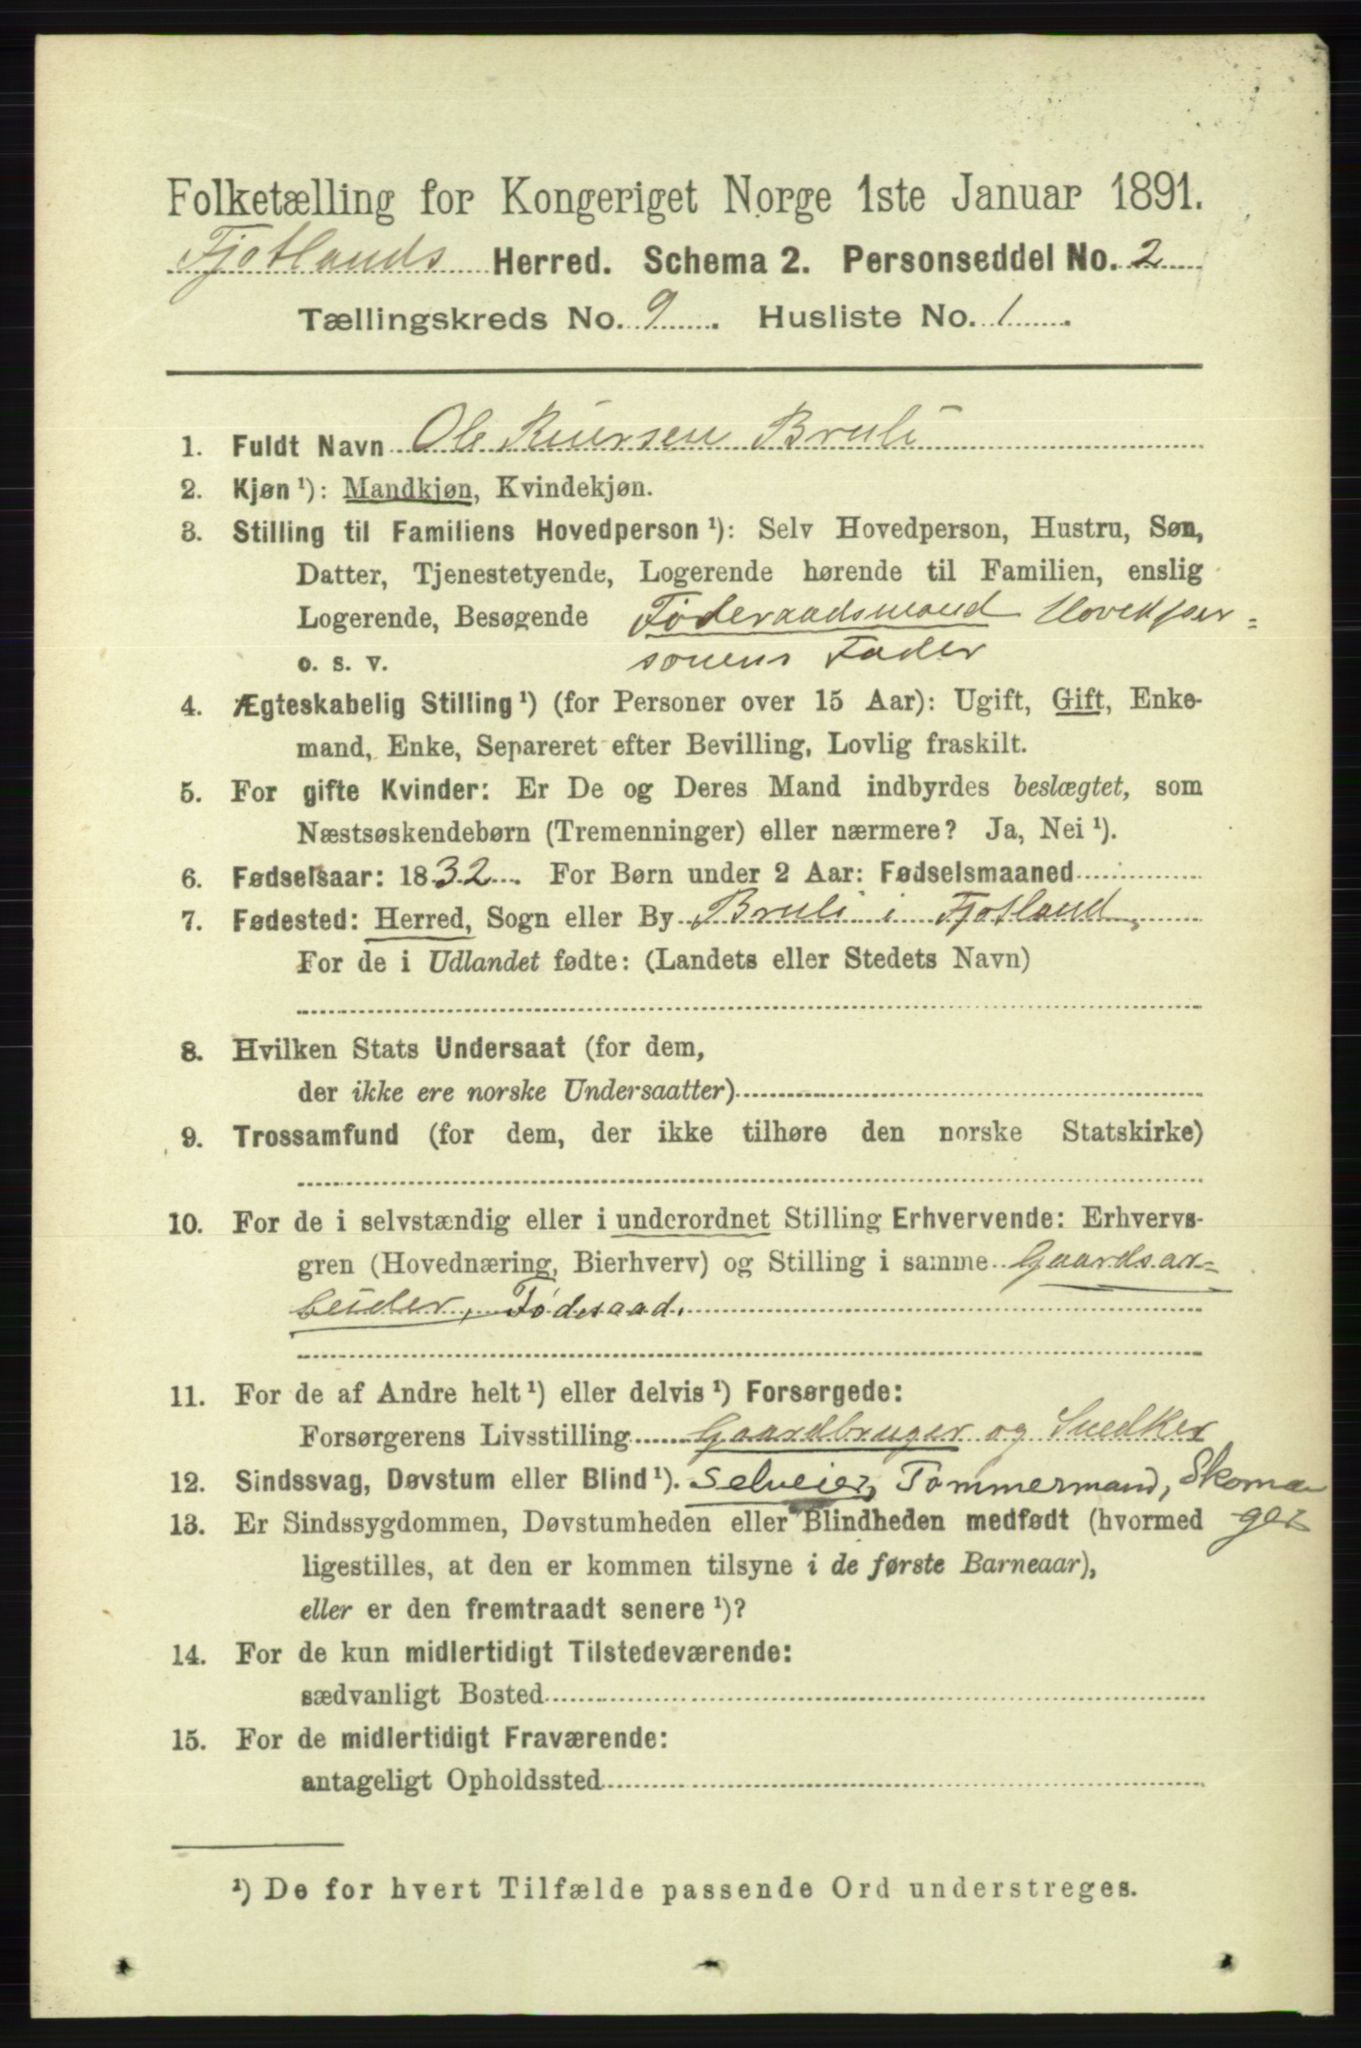 Folketælling for Kongeriget Norge 1ste Januar 1891.
Fjotlands Herred. Schema 2. Personseddel No. 2
Tællingskreds No. 9. Husliste No. 1.
1. Fuldt Navn Ole Reiersen Bruli
2. Kjøn ¹): Mandkjøn, Kvindekjøn.
3. Stilling til Familiens Hovedperson ¹): Selv Hovedperson, Hustru, Søn,
Datter, Tjenestetyende, Logerende hørende til Familien, enslig
Logerende, Besøgende Føderaadsmand Hovedper-
o. s. v. sonens Fader
4. Ægteskabelig Stilling ¹) (for Personer over 15 Aar): Ugift, Gift, Enke-
mand, Enke, Separeret efter Bevilling, Lovlig fraskilt.
5. For gifte Kvinder: Er De og Deres Mand indbyrdes beslægtet, som
Næstsøskendebørn (Tremenninger) eller nærmere? Ja, Nei ¹).
6. Fødselsaar: 1832. For Børn under 2 Aar: Fødselsmaaned
7. Fødested: Herred, Sogn eller By Bruli i Fjotland,
For de i Udlandet fødte: (Landets eller Stedets Navn)
8. Hvilken Stats Undersaat (for dem,
der ikke ere norske Undersaatter)
9. Trossamfund (for dem, der ikke tilhøre den norske Statskirke)
10. For de i selvstændig eller i underordnet Stilling Erhvervende: Erhvervs-
gren (Hovednæring, Bierhverv) og Stilling i samme Gaardsar-
beider, Fødesaad.
11. For de af Andre helt ¹) eller delvis ¹) Forsørgede:
Forsørgerens Livsstilling Gaardbruger og Snedker
12. Sindssvag, Døvstum eller Blind ¹). Selveier, Tømmermand, Skoma
13. Er Sindssygdommen, Døvstumheden eller Blindheden medfødt (hvormed ger
ligestilles, at den er kommen tilsyne i de første Barneaar),
eller er den fremtraadt senere ¹)?
14. For de kun midlertidigt Tilstedeværende:
sædvanligt Bosted
15. For de midlertidigt Fraværende:
antageligt Opholdssted
¹) De for hvert Tilfælde passende Ord understreges.